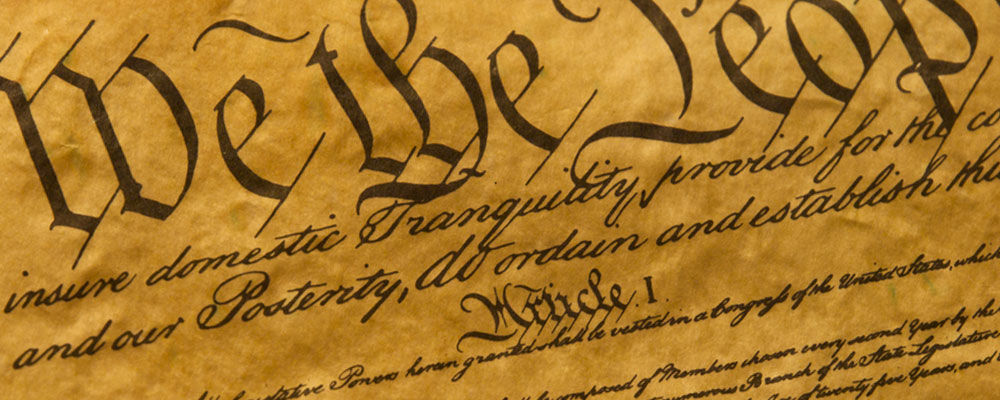 We the Peop
insure domestic Tranquility, provide for the co
and our Posterity, do ordain and establish this
Article. I.
Powers herein granted shall be vested in a Congress of the United States, which
composed of Members chosen every second Year by the
Branch of the State Legislature
of twenty five Years, and